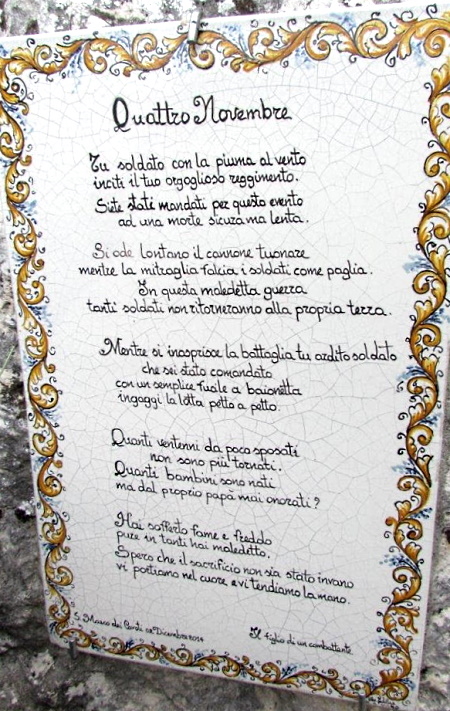 Quattro Novembre
Tu soldato con la piuma al vento
inciti il tuo orgoglioso reggimento.
Siete stati mandati per questo evento
ad una morte sicura ma lenta.
Si ode lontano il cannone tuonare
mentre la mitraglia falcia i soldati come paglia.
In questa maledetta guerra
tanti soldati non ritorneranno alla propria terra.
Mentre si inasprisce la battaglia tu ardito soldato
che sei stato comandato
con un semplice fucile a baionetta
ingaggi la lotta petto a petto.
Quanti ventenni da poco sposati
non sono più tornati.
Quanti bambini sono nati
ma dal proprio papà mai onorati?
Hai sofferto fame e freddo
pure in tanti hai maledetto.
Spero che il sacrificio non sia stato invano
vi portiamo nel cuore, e vi tendiamo la mano.
S. Marco dei Conti Dicembre 2014
Il figlio di un combattente